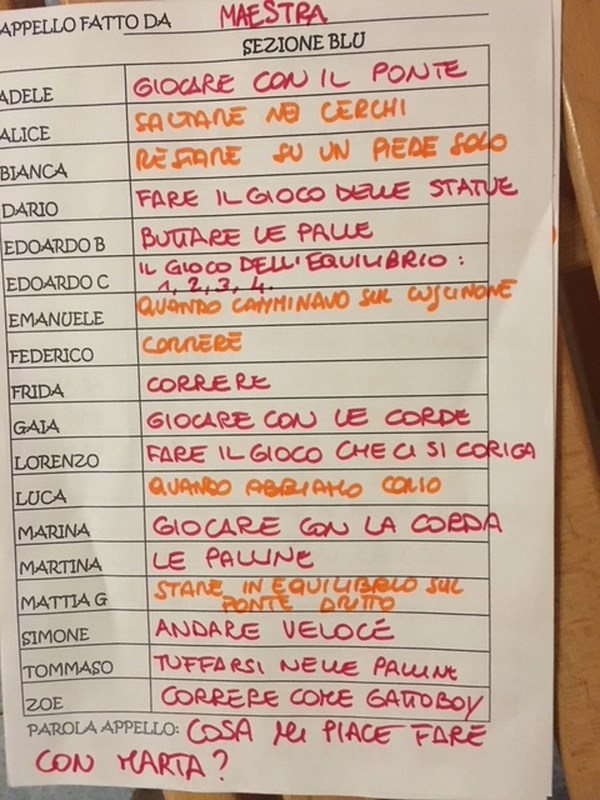 APPELLO FATTO DA MAESTRA
SEZIONE BLU
ADELE GIOCARE CON IL PONTE
ALICE SALTARE NEI CERCHI
BIANCA RESTARE SU UN PIEDE SOLO
DARIO FARE IL GIOCO DELLE STATUE
EDOARDO B BUTTARE LE PALLE
EDOARDO C IL GIOCO DELL'EQUILIBRIO:
1, 2, 3, 4.
EMANUELE QUANDO CAMMINAVO SUL CUSCINONE
FEDERICO CORRERE
FRIDA CORRERE
GAIA GIOCARE CON LE CORDE
LORENZO FARE IL GIOCO CHE CI SI CORIGA
LUCA QUANDO ABBIAMO
MARINA GIOCARE CON LA CORDA
MARTINA LE PALLINE
MATTIA G STARE IN EQUILIBRIO SUL
PONTE DRITTO
SIMONE ANDARE VELOCE
TOMMASO TUFFARSI NELLE PALLINE
ZOE CORRERE COME GATTOBOY
PAROLA APPELLO: COSA MI PIACE FARE
CON MARTA?